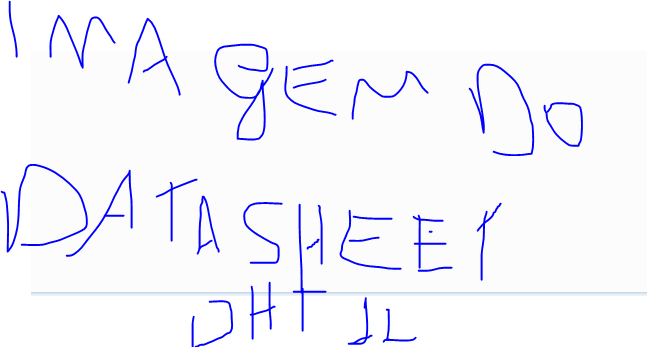 IMAGEM DO
DATASHEET
DHT 11